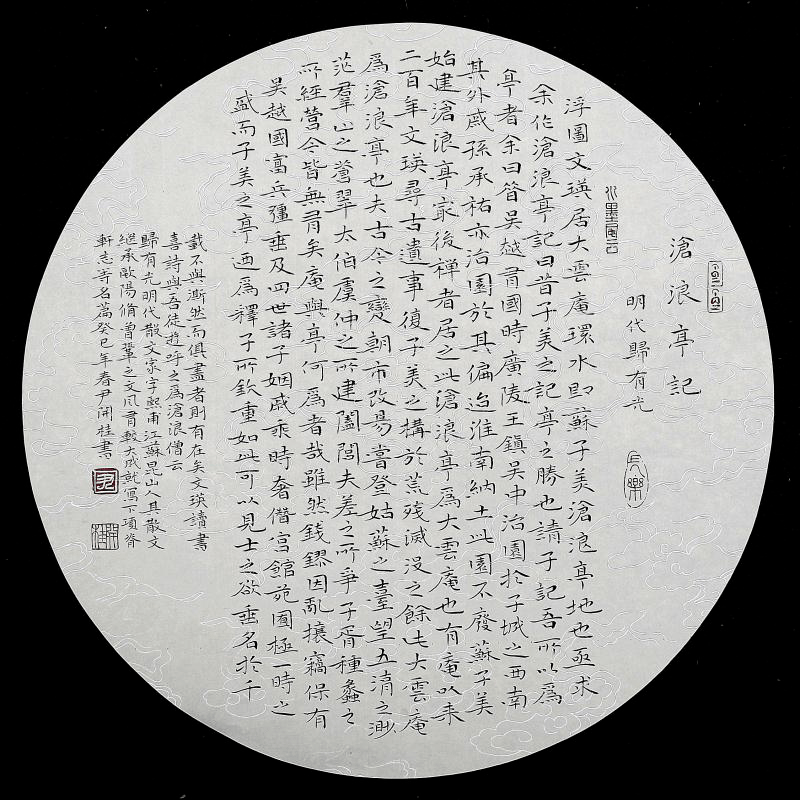 滄浪亭記
明代歸有光
長樂
浮圖文瑛居大雲庵環水即蘇子美滄浪亭地也亟求
余作滄浪亭記曰昔子美之記亭之勝也請子記吾所以為
亭者余曰昔吳越有國時廣陵王鎮吳中治園於子城之西南
其外戚孫承祐亦治園於其偏迨淮南納土此園不廢蘇子美
始建滄浪亭最後禪者居之此滄浪亭為大雲庵也有庵以来
二百年文瑛尋古遺事復子美之構於荒殘滅没之餘此大雲庵
為滄浪亭也夫古今之變朝市改易嘗登姑蘇之臺望五湖之渺
茫羣山之蒼翠太伯虞仲之所建闔閭夫差之所爭子胥種蠡之
所經營今皆無有矣庵與亭何為者哉雖然錢鏐因亂攘竊保有
吳越國富兵彊垂及四世諸子姻戚乘時奢僭宮館苑囿極一時之
盛而子美之亭迺為釋子所欽重如此可以見士之欲垂名於千
載不與澌然而俱盡者則有在矣文瑛讀書
喜詩與吾徒遊呼之為滄浪僧云
歸有光明代散文家字熙甫江蘇昆山人其散文
継承歐陽脩曾鞏之文風有較大成就寫下項脊
軒志等名篇癸巳年春尹開桂書